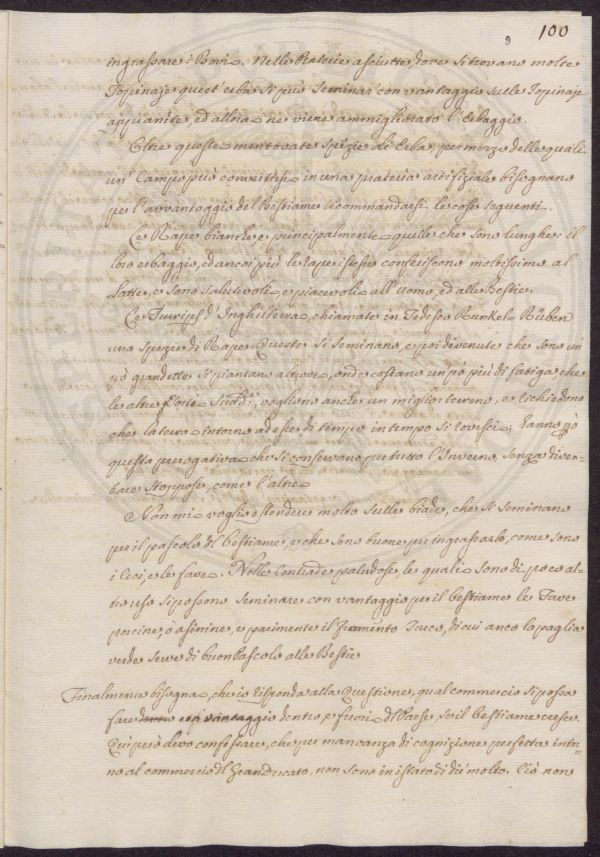 100
9
ingrassare i Bovi. Nelle Praterie asciutte dove si trovano molte
Topinaje quest'erba si può seminar con vantaggio sulle Topinaje
appianite, ed allora ne viene ammigliorato l'Erbaggio.
Oltre queste mentovate spezie di Erba, per mezzo delle quali
un Campo può convertirsi in una prateria artifiziale bisognano
per l'avvantaggio del Bestiame raccomandarsi le cose seguenti.
Le Rape bianche e principalmente quelle che sono lunghe: il
loro erbaggio, ed ancor più le rape istesse conferiscono moltissimo al
Latte, e sono salutevoli, e piacevoli all'Uomo, ed alle Bestie.
Le Turnips d'Inghilterra, chiamate in Tedesco Runkel-Rüben
una spezie di Rape. Queste si seminano, e poi divenute che sono un
pò grandette si piantano altrove, onde costano un pò più di fatiga che
le altre vogliono anche un miglior terreno, e richiedono
che la terra intorno ad esse di tempo in tempo si rovesci; hanno però
questa prerogativa che si conservano per tutto l'Inverno, senza diven-
tare stoppose, come l'altre.
Non mi voglio estendere molto sulle biade, che si seminano
per il pascolo del bestiame, e che sono buone per ingrassarlo, come sono
i Ceci, e le fave. Nelle Contrade paludose, le quali sono di poco al-
tro uso si possono seminare con vantaggio per il bestiame le Fave
porcine, ò asinine, e parimente il Frumento Turco, di cui anco la paglia
verde serve di buon Pascolo alle Bestie
Finalmente bisogna, che io risponda alla Questione, qual commercio si possa
fare dentro, e fuori del Paese, se il bestiame cresce.
Qui però devo confessare, che per mancanza di cognizione perfetta intor-
no al commercio del Granducato, non sono in istato di dir molto. Ciò non